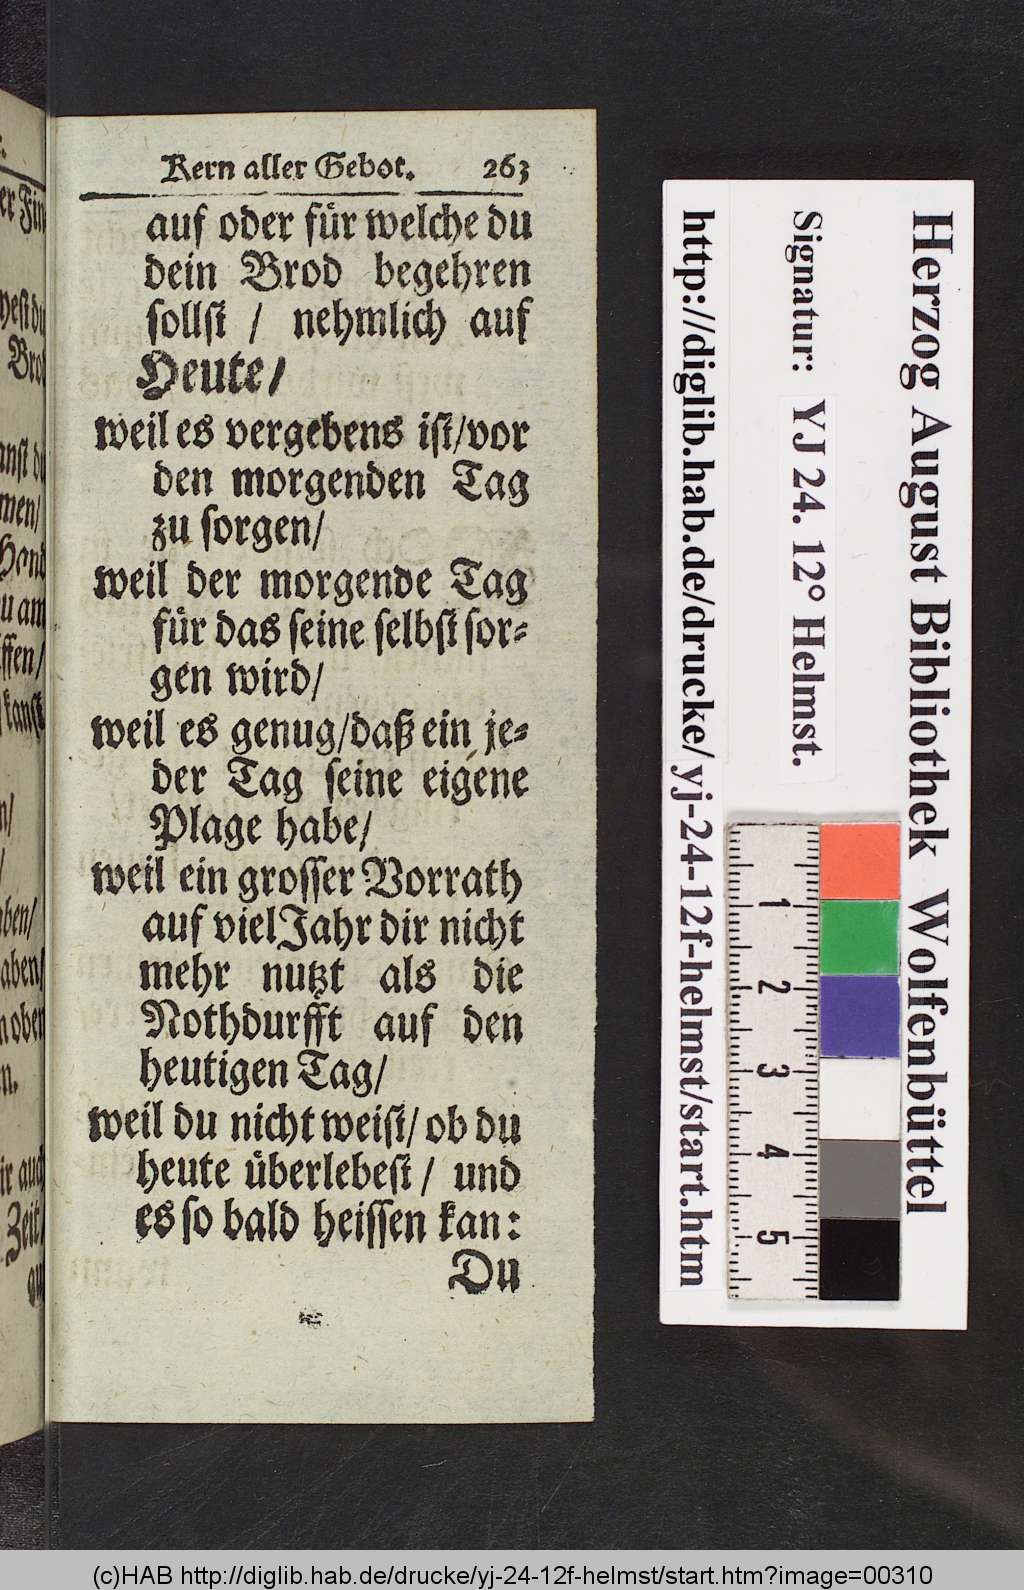 Kern aller Gebot. 263
auf oder für welche du
dein Brod begehren
sollst / nehmlich auf
Heute/
weil es vergebens ist/vor
den morgenden Tag
zu sorgen/
weil der morgende Tag
für das seine selbst sor-
gen wird/
weil es genug/daß ein je-
der Tag seine eigene
Plage habe/
weil ein grosser Vorrath
auf viel Jahr dir nicht
mehr nutzt als die
Nothdurfft auf den
heutigen Tag/
weil du nicht weist/ ob du
heute überlebest / und
es so bald heissen kan:
Du
er Fin
hest du
Brod
anst du
men/
Hand
u am
ffen/
kanst
n/
/
ben/
aben/
n oben
n.
ir auch
Zeit/
Herzog August Bibliothek Wolfenbüttel
Signatur: YJ 24. 12° Helmst.
http://diglib.hab.de/drucke/yj-24-12f-helmst/start.htm
1
2
3
4
5
(c)HAB http://diglib.hab.de/drucke/yj-24-12f-helmst/start.htm?image=00310